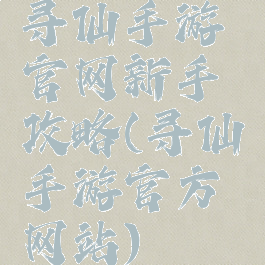 寻仙手游
官网新手
攻略(寻仙
手游官方
网站)